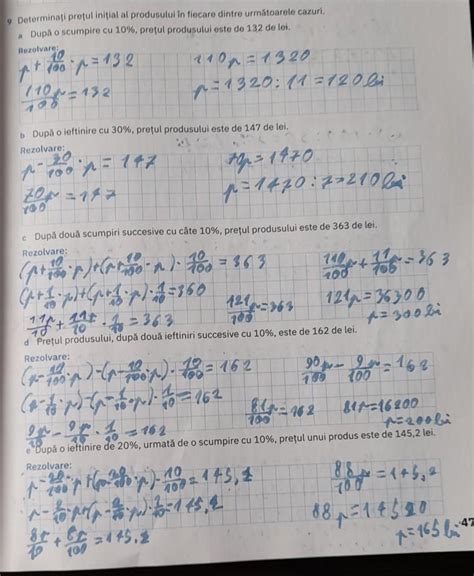 9 Determinați prețul inițial al produsului în fiecare dintre următoarele cazuri.
a După o scumpire cu 10%, prețul produsului este de 132 de lei.
Rezolvare:
p + 10/100 · p = 132
110p = 1320
110p/100 = 132
p = 1320 : 11 = 120 lei
b După o ieftinire cu 30%, prețul produsului este de 147 de lei.
Rezolvare:
p - 30/100 · p = 147
7p = 1470
70p/100 = 147
p = 1470 : 7 = 210 lei
c După două scumpiri succesive cu câte 10%, prețul produsului este de 363 de lei.
Rezolvare:
(p + 10/100 · p) + (p + 10/100 · p) · 10/100 = 363
110p/100 + 11p/100 = 363
(p + 1/10 · p) + (p + 1/10 · p) · 1/10 = 360
121p/100 = 363
121p = 36300
11p/10 + 11p/10 · 1/10 = 363
p = 300 lei
d Prețul produsului, după două ieftiniri succesive cu 10%, este de 162 de lei.
Rezolvare:
(p - 10/100 · p) - (p - 10/100 · p) · 10/100 = 162
90p/100 - 9p/100 = 162
(p - 1/10 · p) - (p - 1/10 · p) · 1/10 = 162
81p/100 = 162
81p = 16200
9p/10 - 9p/10 · 1/10 = 162
p = 200 lei
e După o ieftinire de 20%, urmată de o scumpire cu 10%, prețul unui produs este de 145,2 lei.
Rezolvare:
88p/100 = 145,2
88p = 14520
8p/10 + 8p/100 = 145,2
p = 165 lei
47